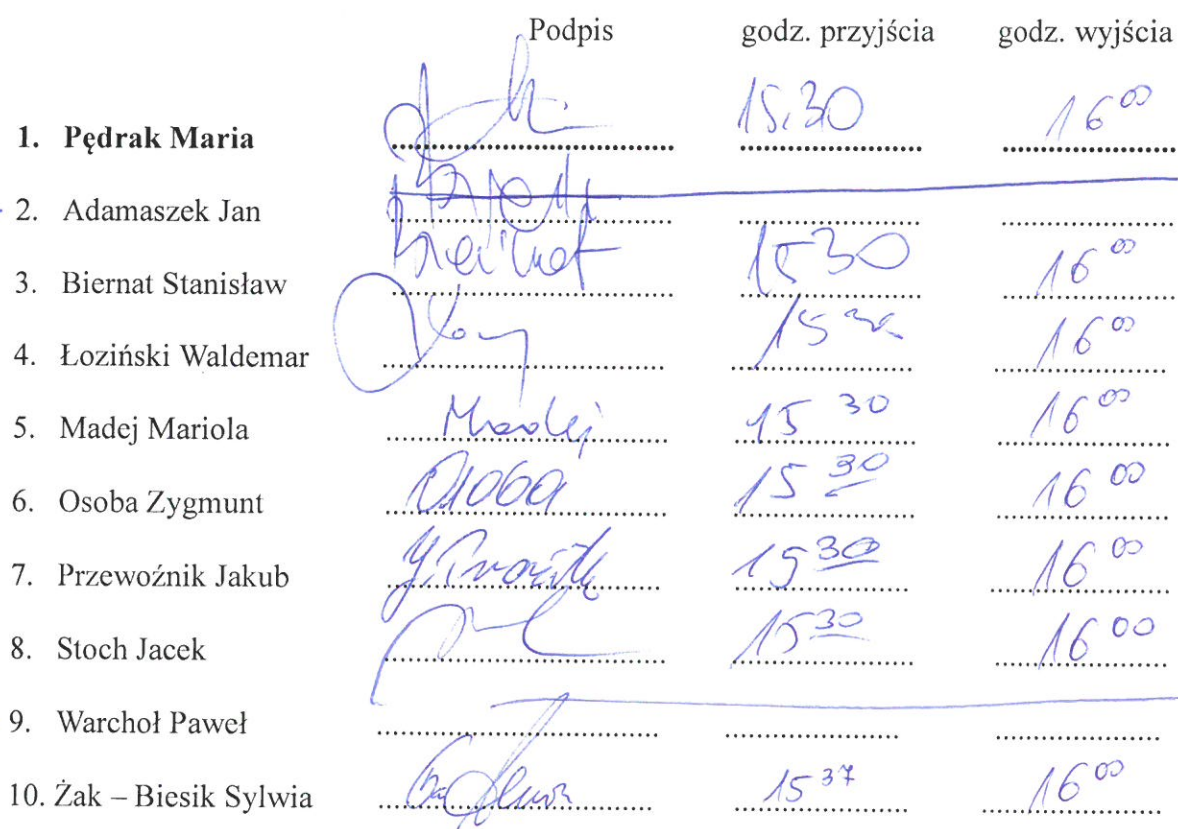 Podpis godz. przyjścia godz. wyjścia
1. Pędrak Maria 15.30 16 00
2. Adamaszek Jan
3. Biernat Stanisław Biernat 15 30 16 00
4. Łoziński Waldemar 15 30 16 00
5. Madej Mariola Madej 15 30 16 00
6. Osoba Zygmunt Osoba 15 30 16 00
7. Przewoźnik Jakub 15 30 16 00
8. Stoch Jacek 15 30 16 00
9. Warchoł Paweł
10. Żak – Biesik Sylwia 15 37 16 00